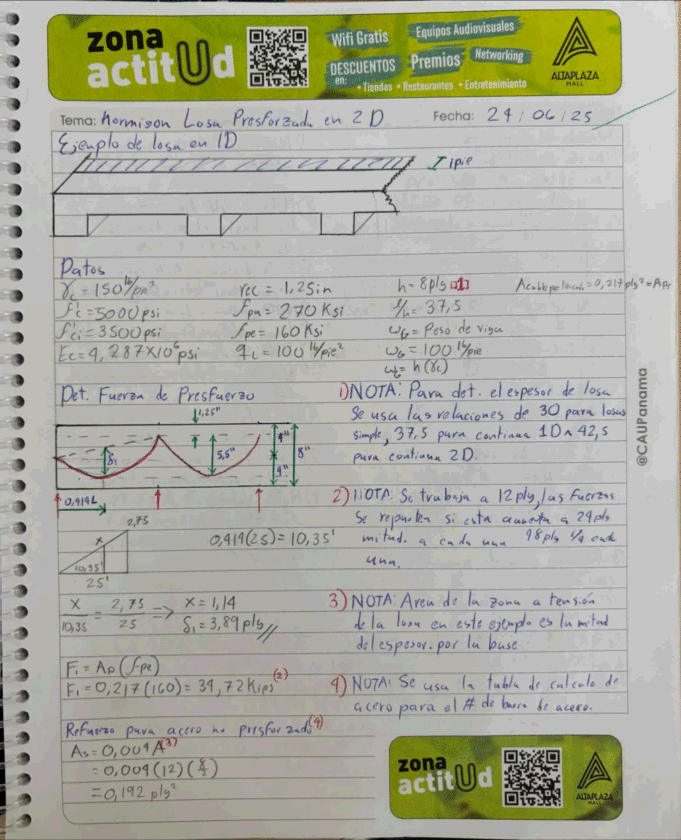 zona
actitUd
Wifi Gratis
Equipos Audiovisuales
DESCUENTOS
en:
Premios
Networking
• Tiendas • Restaurantes • Entretenimiento
ALTAPLAZA
MALL
Tema: Hormison Losa Presforzada en 2D
Fecha: 24/06/25
Ejemplo de losa en 1D
1pie
Datos
γc = 150 lb/pie³
rec = 1,25in
h = 8plg
f'c = 5000psi
fpu = 270 Ksi
ℓ/h = 37,5
f'ci = 3500psi
fpe = 160 Ksi
ωG = Peso de viga
Ec = 4,287X10⁶psi
qL = 100 lb/pie²
ωG = 100 lb/pie
= h(γc)
Det. Fuerza de Presfuerzo
1,25"
δ1
5,5"
4"
8"
4"
0,414L
1) NOTA: Para det. el espesor de losa
Se usa las relaciones de 30 para losas
simple, 37,5 para continua 1D 42,5
para continua 2D.
2) NOTA: Se trabaja a 12plg, las fuerzas
Se reparten si esta aumenta a 24plg
mitad a cada una 48plg 1/4 cada
una.
2,75
x
10,35'
25'
0,414(25) = 10,35'
x/10,35 = 2,75/25 => x = 1,14
δ1 = 3,89plg
3) NOTA: Area de la zona a tensión
de la losa en este ejemplo es la mitad
del espesor. por la base
F1 = Ap(fpe)
F1 = 0,217(160) = 34,72Kips (2)
4) NOTA: Se usa la tabla de calculo de
acero para el # de barra de acero.
Refuerzo para acero no presforzado (4)
As = 0,004A (3)
= 0,004(12)(8/2)
= 0,192 plg²
zona
actitUd
ALTAPLAZA
MALL
@CAUPanama